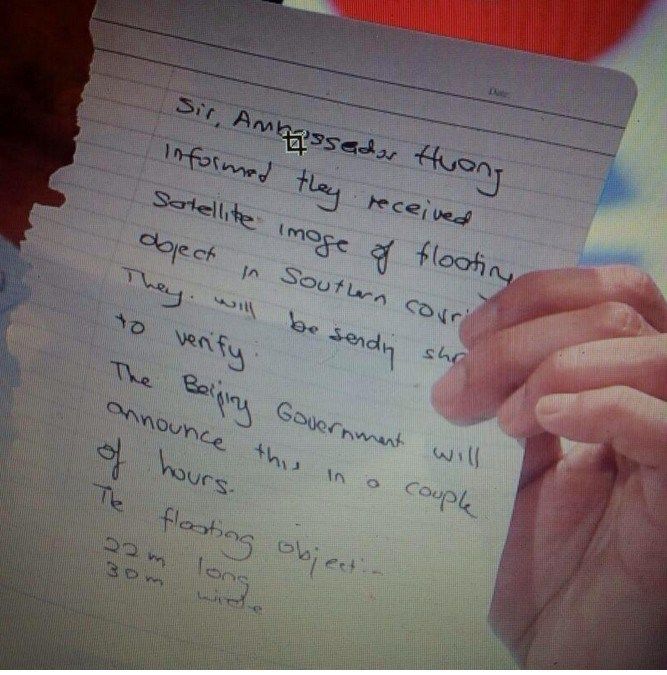 Date:
Sir, Ambassador Huang
informed they received
Satellite image of floating
object in Southern corri
They. will be sending
to verify.
The Beijing Government will
announce this in a couple
of hours.
The floating object:-
22m long
30m wide